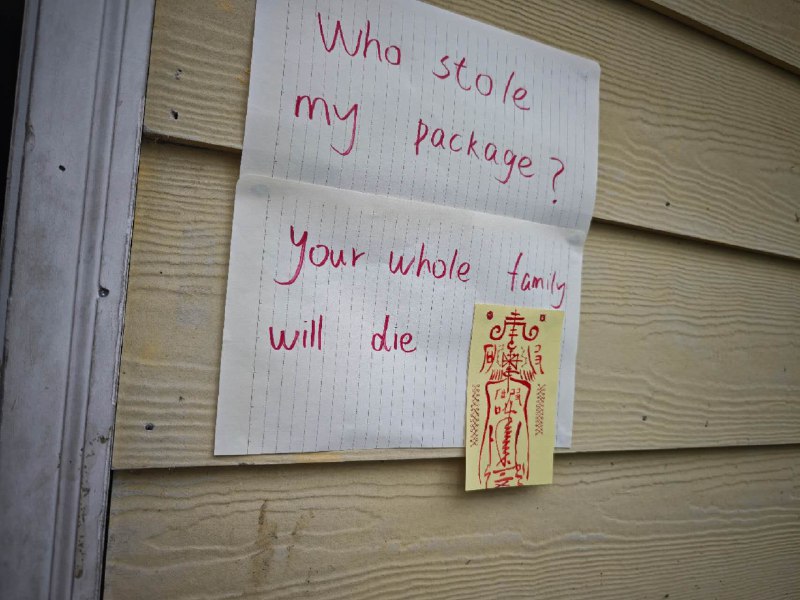 Who stole
my package?
Your whole family
will die